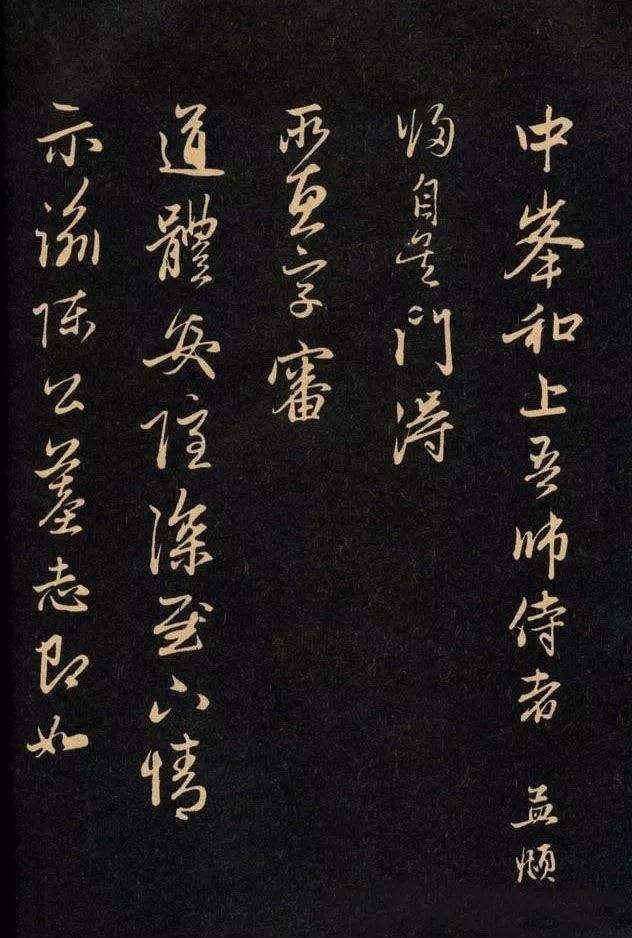 中峯和上吾師侍者 孟頫
歸自吳門得
所惠字審
道體安隱深慰下情
示諭陳公墓志即如